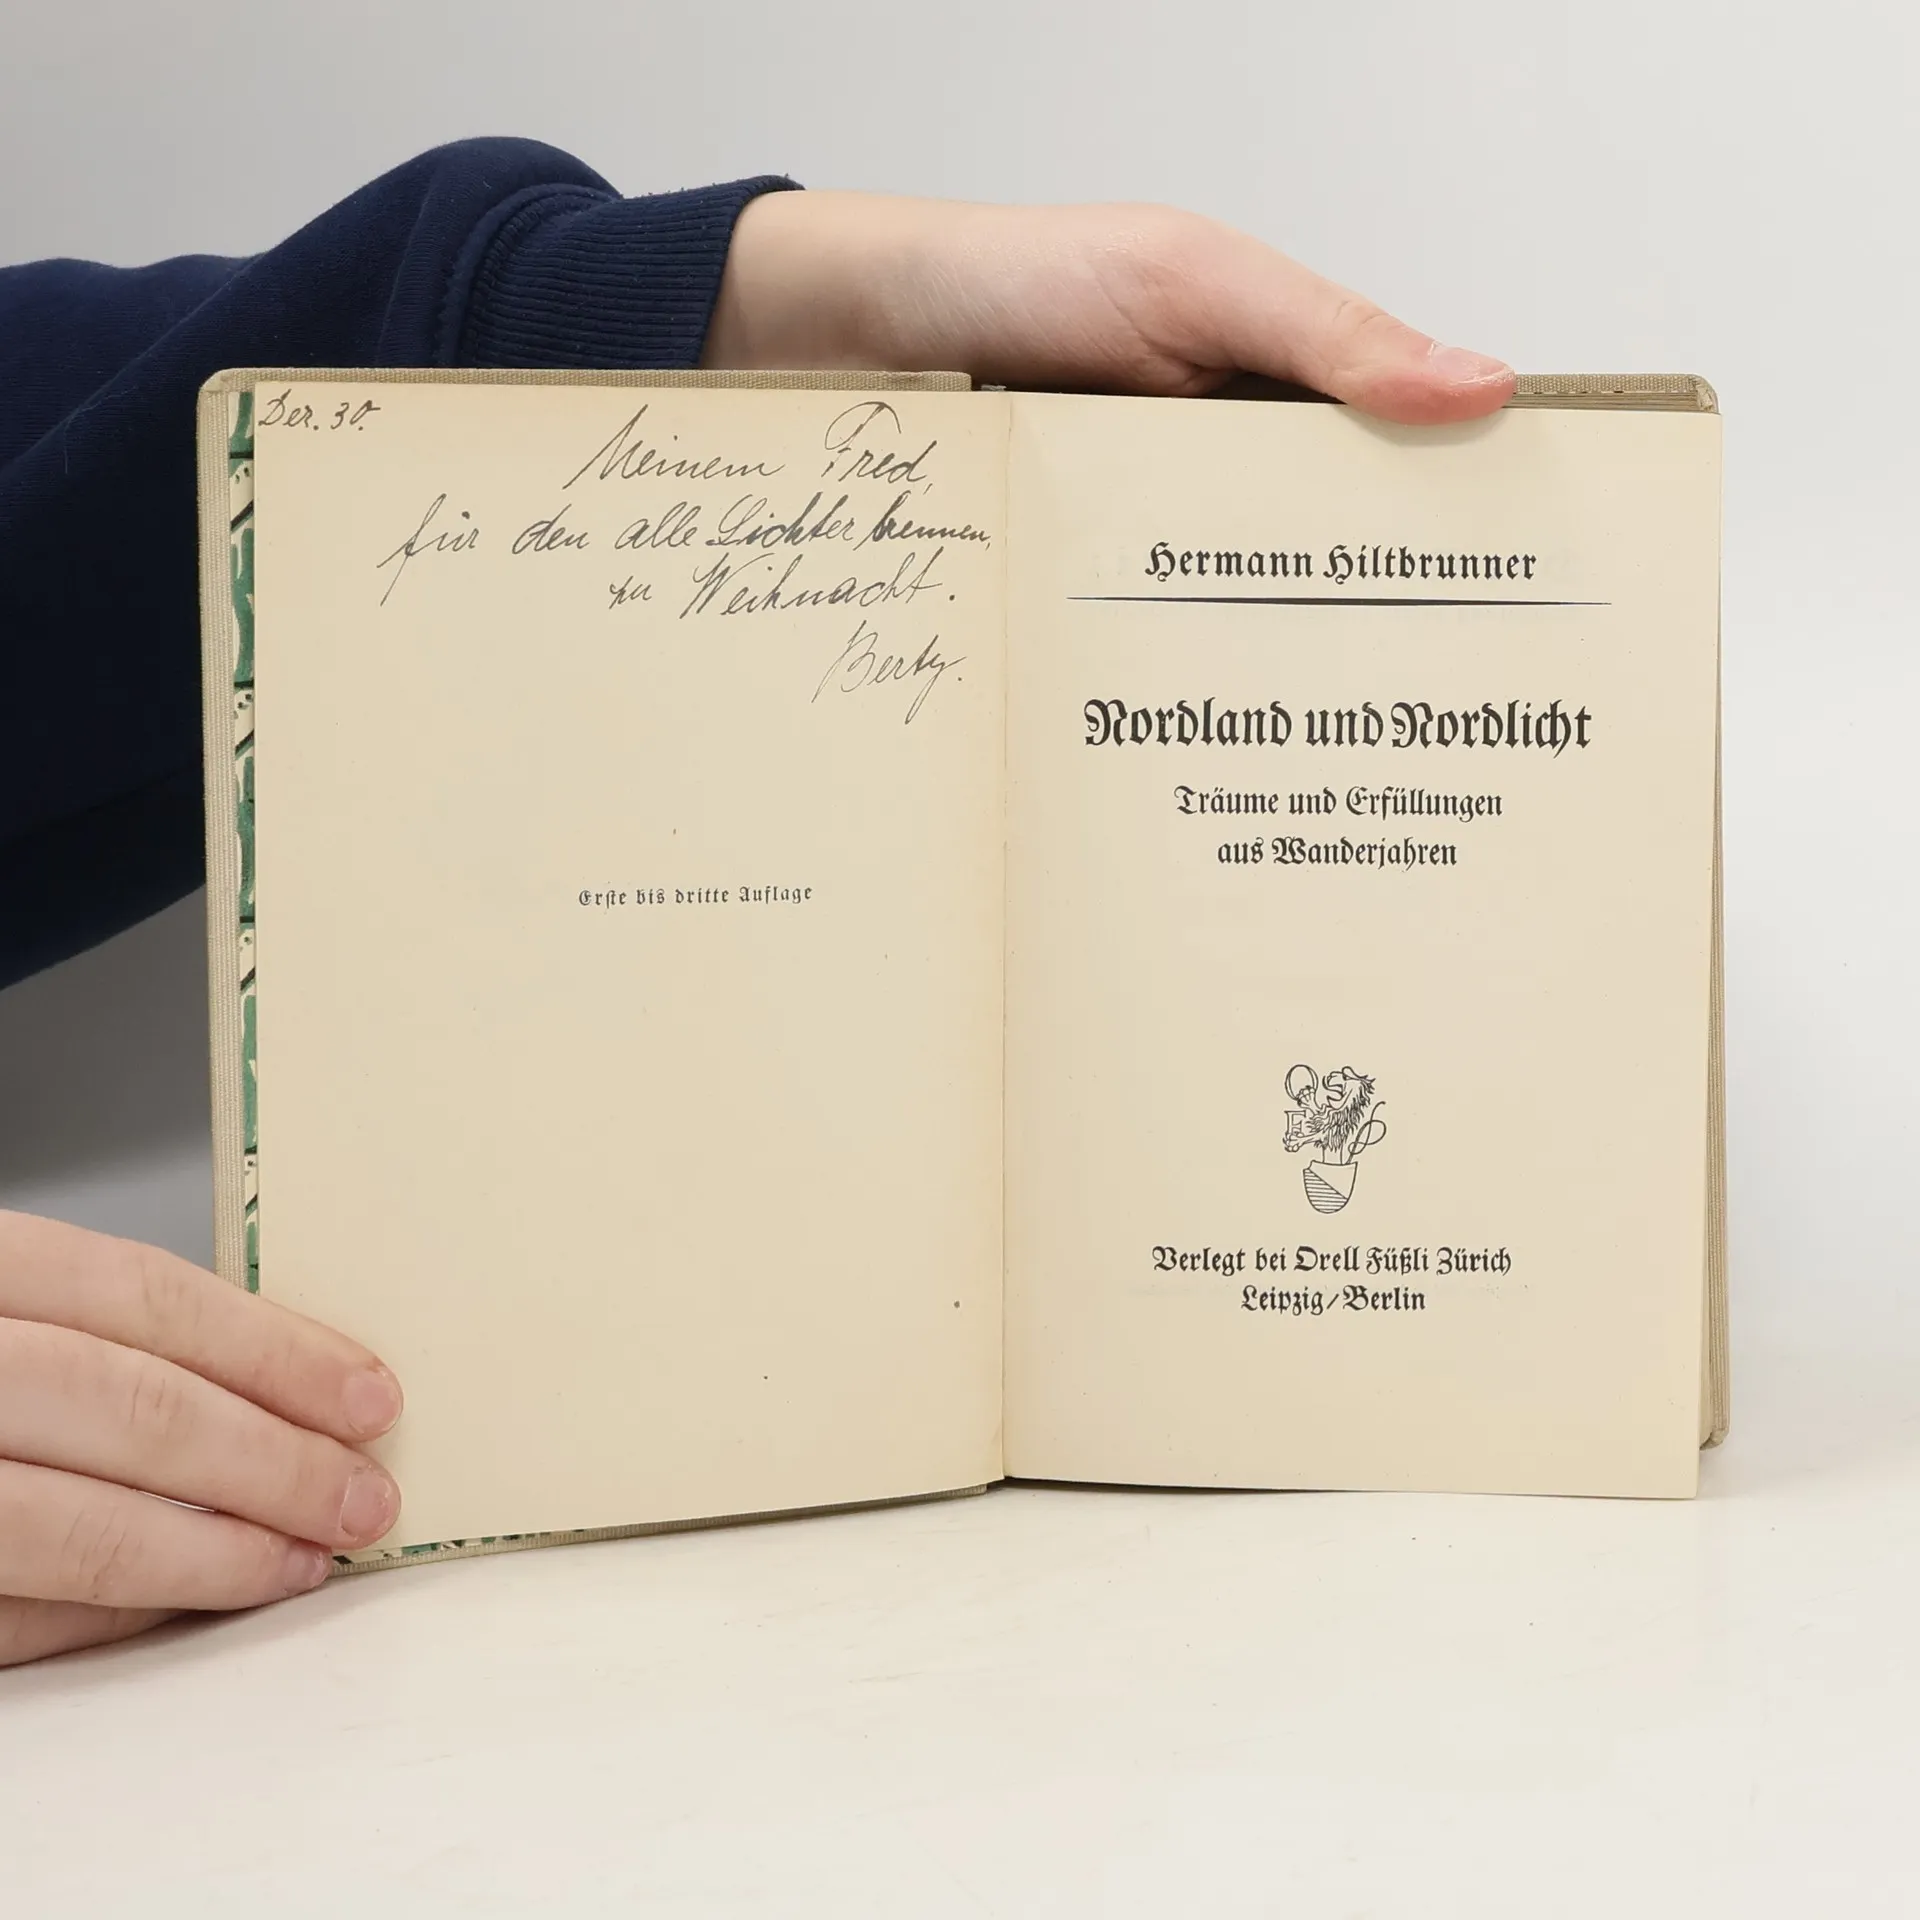 Dez. 30.
Meinem Fred,
für den alle Lichter brennen,
zu Weihnacht.
Berty.
Erste bis dritte Auflage
Hermann Hiltbrunner
Nordland und Nordlicht
Träume und Erfüllungen
aus Wanderjahren
Verlegt bei Orell Füßli Zürich
Leipzig/Berlin